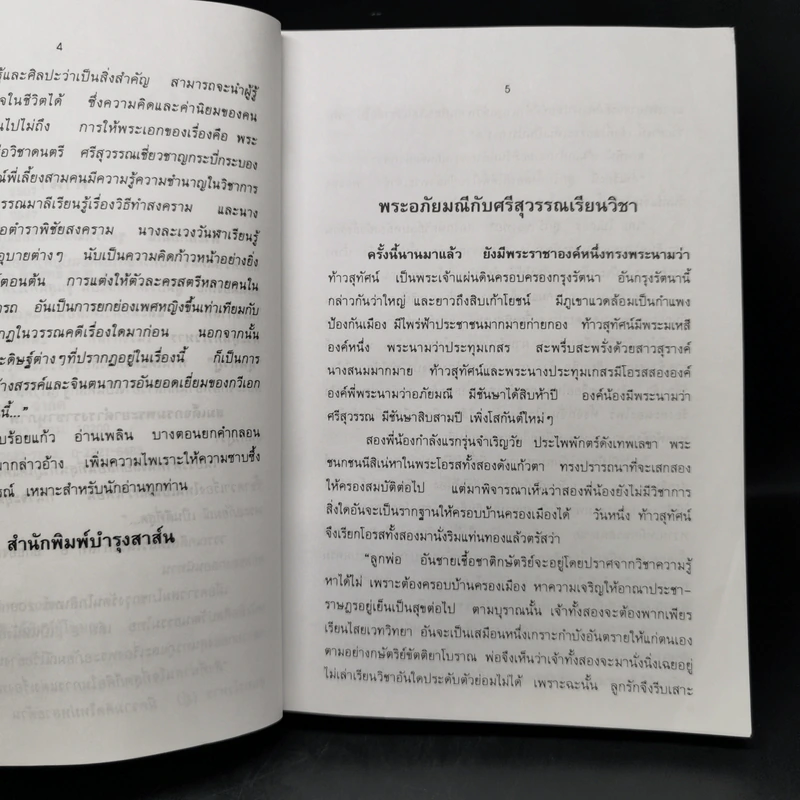 4
รู้และศิลปะว่าเป็นสิ่งสำคัญ สามารถจะนำผู้รู้
จในชีวิตได้ ซึ่งความคิดและค่านิยมของคน
นไปไม่ถึง การให้พระเอกของเรื่องคือ พระ
วิชาดนตรี ศรีสุวรรณเชี่ยวชาญกระบี่กระบอง
ณ์พี่เลี้ยงสามคนมีความรู้ความชำนาญในวิชาการ
วรรณมาลีเรียนรู้เรื่องวิธีทำสงคราม และนาง
ตำราพิชัยสงคราม นางละเวงวันฬาเรียนรู้
อุบายต่างๆ นับเป็นความคิดก้าวหน้าอย่างยิ่ง
ตอนต้น การแต่งให้ตัวละครสตรีหลายคนใน
ารถ อันเป็นการยกย่องเพศหญิงขึ้นเท่าเทียมกับ
กฏในวรรณคดีเรื่องใดมาก่อน นอกจากนั้น
ะดิษฐ์ต่างๆที่ปรากฏอยู่ในเรื่องนี้ ก็เป็นการ
างสรรค์และจินตนาการอันยอดเยี่ยมของกวีเอก
นี้...”
บร้อยแก้ว อ่านเพลิน บางตอนยกคำกลอน
มากล่าวอ้าง เพิ่มความไพเราะให้ความซาบซึ้ง
ณ์ เหมาะสำหรับนักอ่านทุกท่าน
สำนักพิมพ์บำรุงสาส์น
5
พระอภัยมณีกับศรีสุวรรณเรียนวิชา
ครั้งนี้นานมาแล้ว ยังมีพระราชาองค์หนึ่งทรงพระนามว่า
ท้าวสุทัศน์ เป็นพระเจ้าแผ่นดินครอบครองกรุงรัตนา อันกรุงรัตนานี้
กล่าวกันว่าใหญ่ และยาวถึงสิบเก้าโยชน์ มีภูเขาแวดล้อมเป็นกำแพง
ป้องกันเมือง มีไพร่ฟ้าประชาชนมากมายก่ายกอง ท้าวสุทัศน์มีพระมเหสี
องค์หนึ่ง พระนามว่าประทุมเกสร สะพรึ่บสะพรั่งด้วยสาวสุรางค์
นางสนมมากมาย ท้าวสุทัศน์และพระนางประทุมเกสรมีโอรสสององค์
องค์พี่พระนามว่าอภัยมณี มีชันษาได้สิบห้าปี องค์น้องมีพระนามว่า
ศรีสุวรรณ มีชันษาสิบสามปี เพิ่งโสกันต์ใหม่ๆ
สองพี่น้องกำลังแรกรุ่นจำเริญวัย ประไพพักตร์ดังเทพเลขา พระ
ชนกชนนีสิเน่หาในพระโอรสทั้งสองดังแก้วตา ทรงปรารถนาที่จะเสกสอง
ให้ครองสมบัติต่อไป แต่มาพิจารณาเห็นว่าสองพี่น้องยังไม่มีวิชาการ
สิ่งใดอันจะเป็นรากฐานให้ครอบบ้านครองเมืองได้ วันหนึ่ง ท้าวสุทัศน์
จึงเรียกโอรสทั้งสองมานั่งริมแท่นทองแล้วตรัสว่า
“ลูกพ่อ อันชายเชื้อชาติกษัตริย์จะอยู่โดยปราศจากวิชาความรู้
หาได้ไม่ เพราะต้องครอบบ้านครองเมือง หาความเจริญให้อาณาประชา-
ราษฎรอยู่เย็นเป็นสุขต่อไป ตามบุราณนั้น เจ้าทั้งสองจะต้องพากเพียร
เรียนไสยเวทวิทยา อันจะเป็นเสมือนหนึ่งเกราะกำบังอันตรายให้แก่ตนเอง
ตามอย่างกษัตริย์ขัตติยาโบราณ พ่อจึงเห็นว่าเจ้าทั้งสองจะมานั่งนิ่งเฉยอยู่
ไม่เล่าเรียนวิชาอันใดประดับตัวย่อมไม่ได้ เพราะฉะนั้น ลูกรักจึงรีบเสาะ